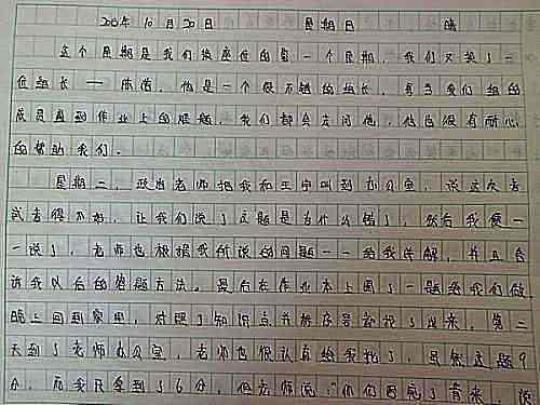 20 年10月20日 星期日 晴
这个星期是我们换座位的第一个星期，我们又换了一
位组长——陈浩，他是一个很不错的组长，每当我们组的
成员遇到作业上的难题，我们都会去问他，他也很有耐心
的帮助我们。
星期二，政治老师把我和王宇叫到办公室，说这次考
试考得不好，让我们说了这题是为什么错了，然后我便一
一说了，老师也根据我所说的问题一一给我详解，并且告
诉我以后的答题方法。最后在作业本上圈了一题给我们做，
晚上回到家里，对照了知识点并 序号 了出来，第二
天到了老师办公室，老师也很认真给我批了，虽然这题9
分，而我只拿到了6分，但老师说：“你们回完了 来，说